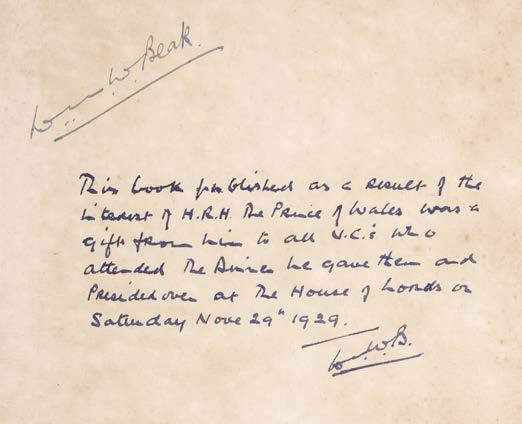 Wm W. Beak.
This book published as a result of the
interest of H.R.H. The Prince of Wales was a
gift from him to all V.C.s who
attended the Dinner he gave them and
Presided over at The House of Lords on
Saturday Nove 29th 1929.
W.W.B.